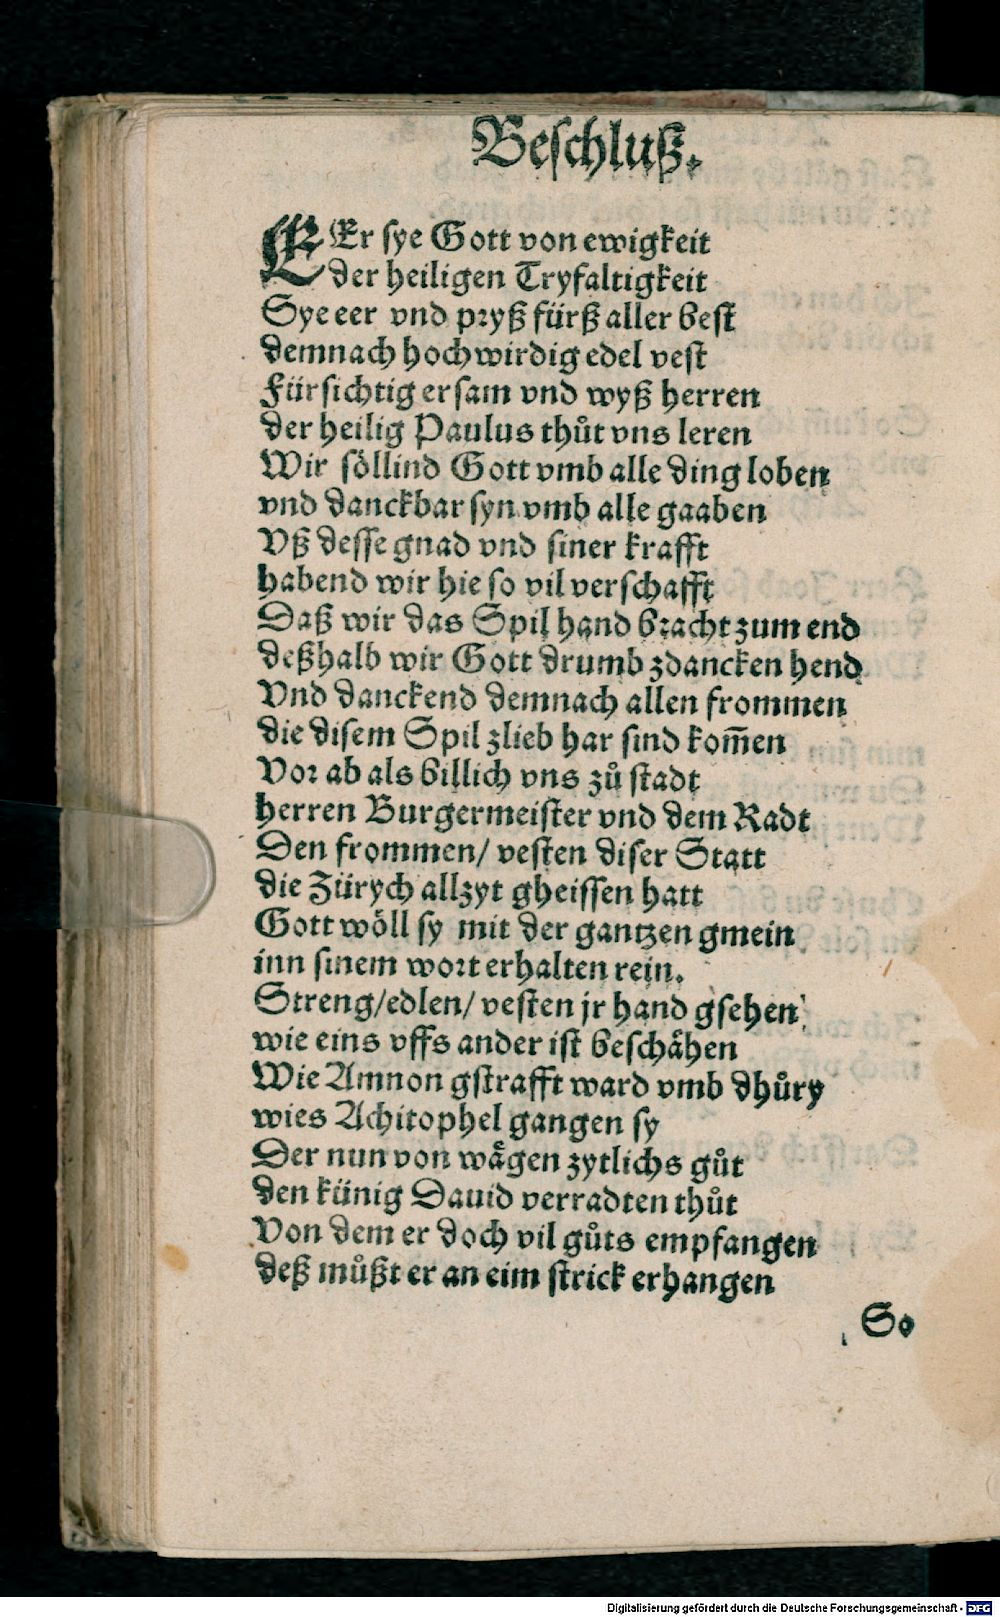 Beschluß.
EEr sye Gott von ewigkeit
der heiligen Tryfaltigkeit
Sye eer vnd pryß fürß aller best
demnach hochwirdig edel vest
Fürsichtig ersam vnd wyß herren
der heilig Paulus thůt vns leren
Wir söllind Gott vmb alle ding loben
vnd danckbar syn vmb alle gaaben
Vß desse gnad vnd siner krafft
habend wir hie so vil verschafft
Daß wir das Spil hand bracht zum end
deßhalb wir Gott drumb zdancken hend
Vnd danckend demnach allen frommen
die disem Spil zlieb har sind kom̃en
Vor ab als billich vns zů stadt
herren Burgermeister vnd dem Radt
Den frommen/ vesten diser Statt
die Zürych allzyt gheissen hatt
Gott wöll sy mit der gantzen gmein
inn sinem wort erhalten rein.
Streng/edlen/ vesten jr hand gsehen
wie eins vffs ander ist beschähen
Wie Amnon gstrafft ward vmb dhůry
wies Achitophel gangen sy
Der nun von wägen zytlichs gůt
den künig Dauid verradten thůt
Von dem er doch vil gůts empfangen
deß můßt er an eim strick erhangen
So
Digitalisierung gefördert durch die Deutsche Forschungsgemeinschaft - DFG